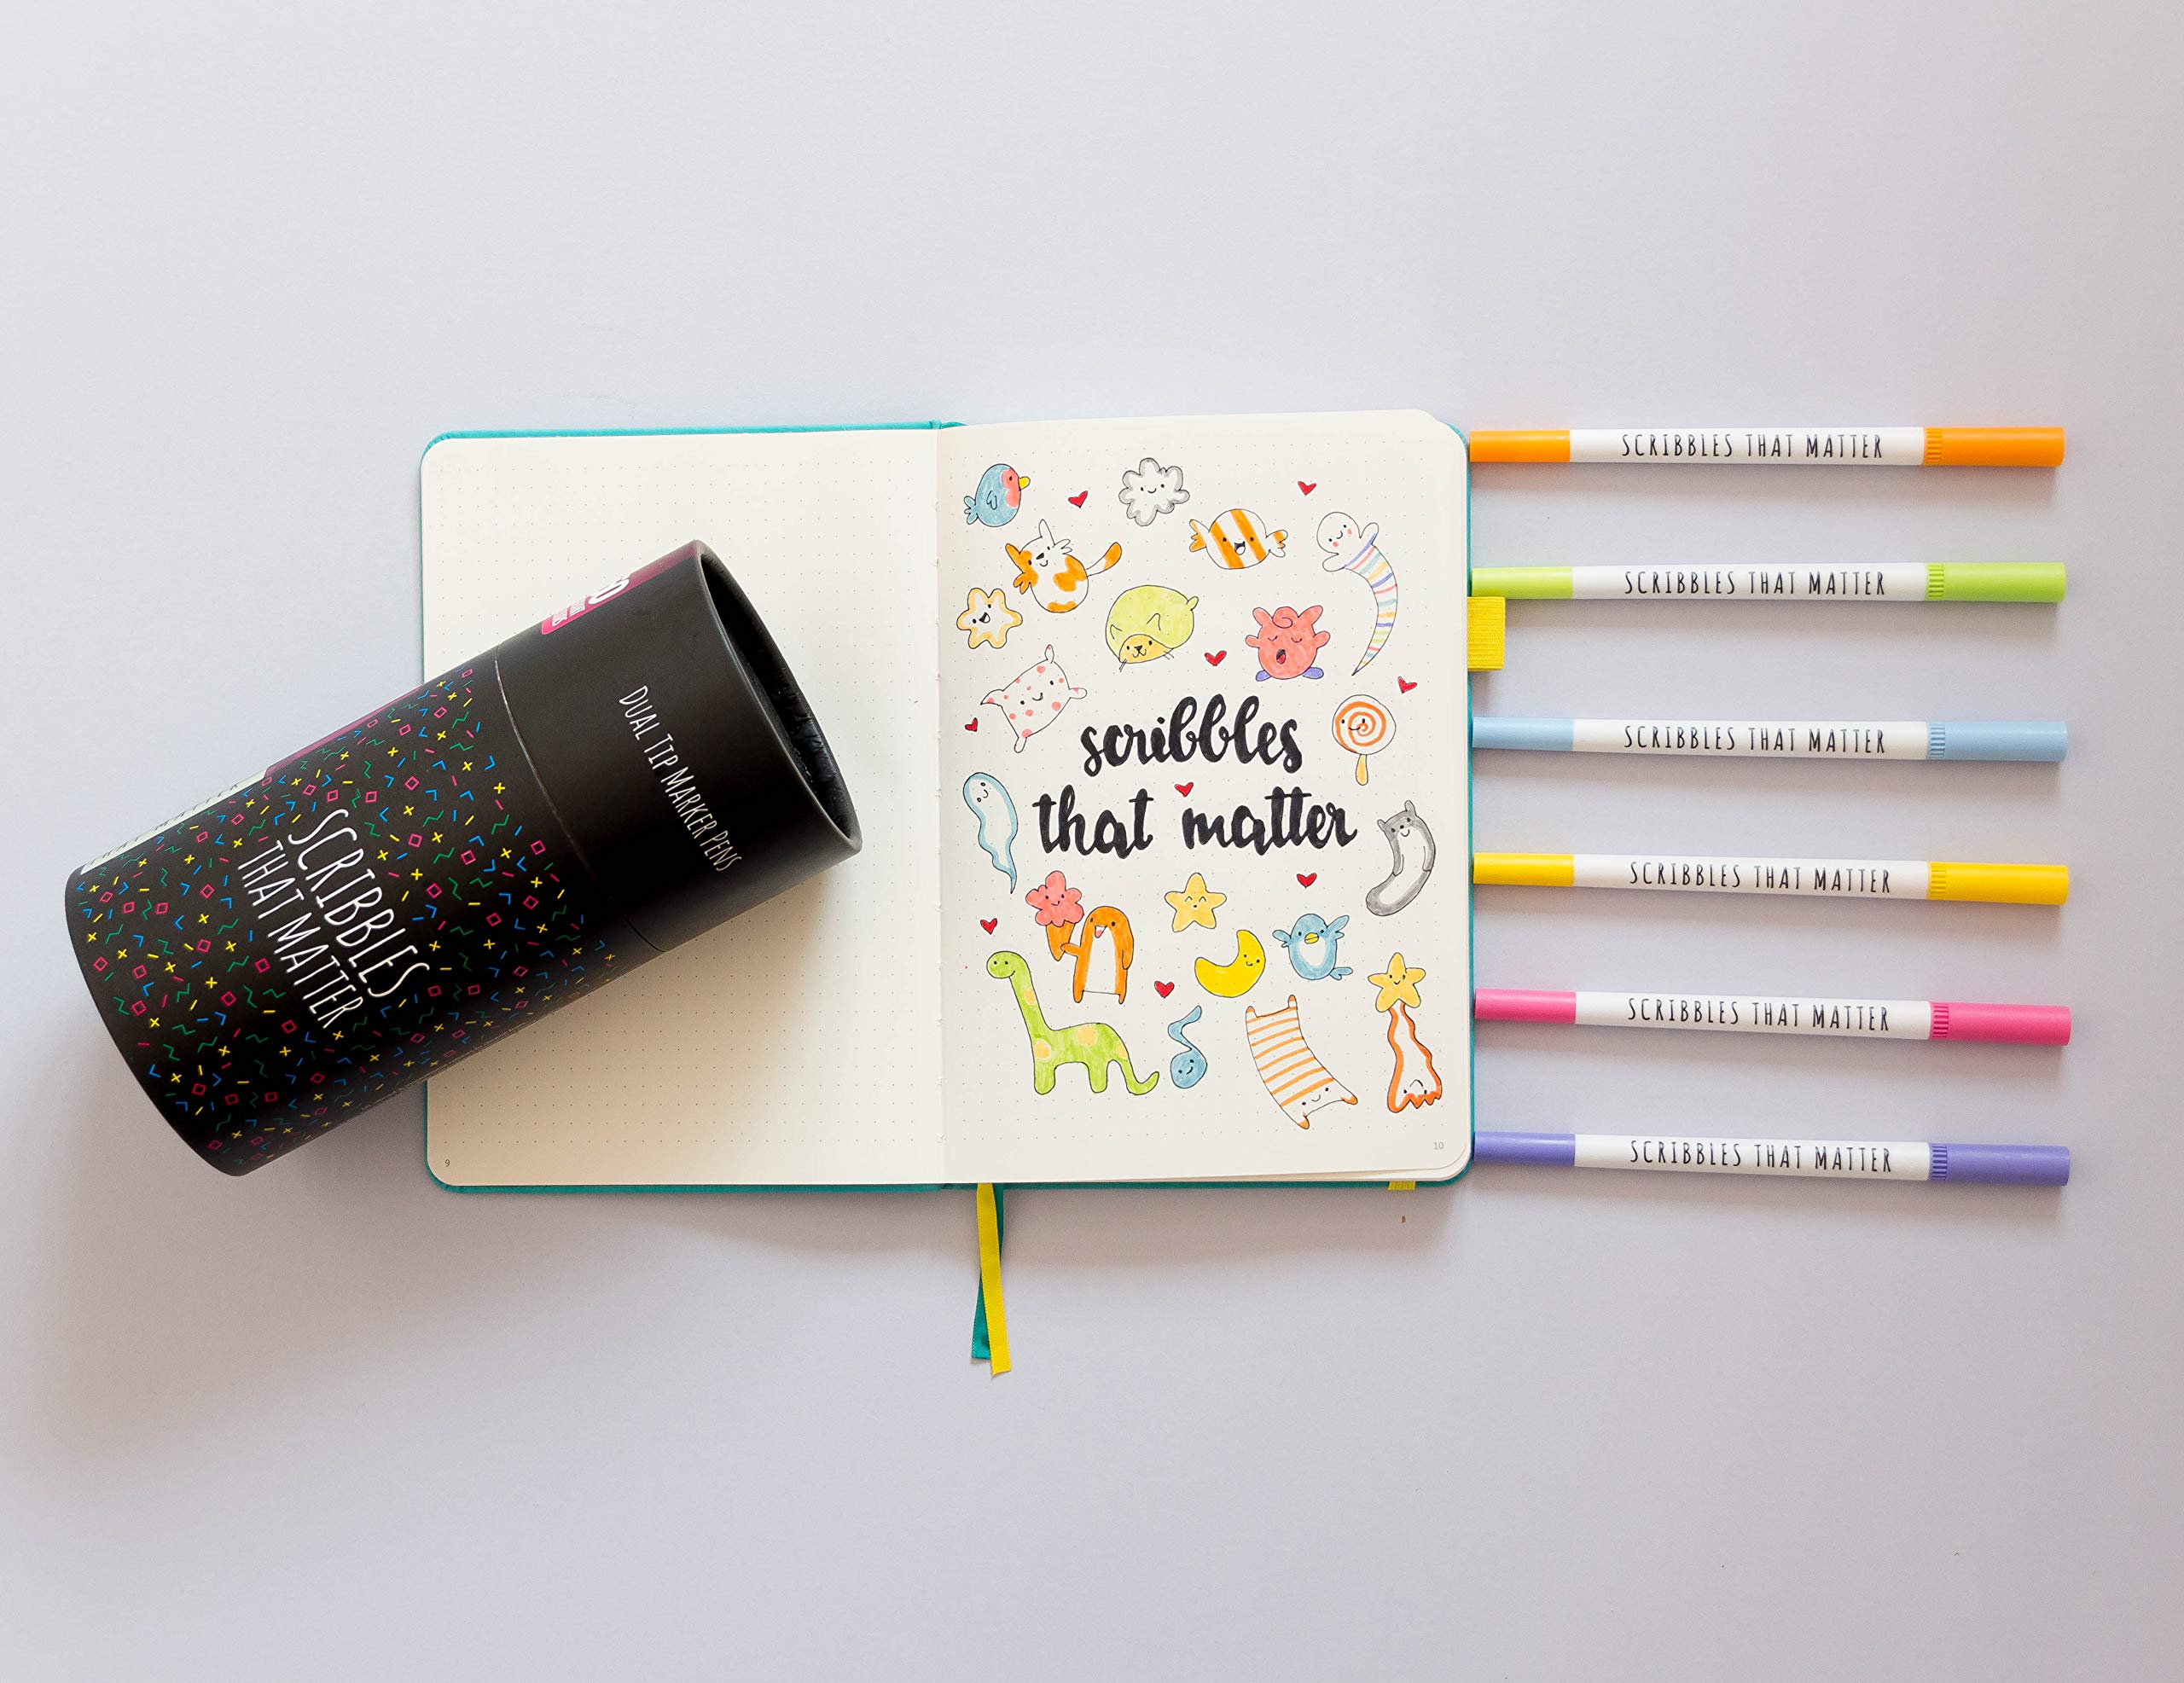 SCRIBBLES
THAT MATTER
DUAL TIP MARKER PENS
9
scribbles
that matter
10
SCRIBBLES THAT MATTER
SCRIBBLES THAT MATTER
SCRIBBLES THAT MATTER
SCRIBBLES THAT MATTER
SCRIBBLES THAT MATTER
SCRIBBLES THAT MATTER